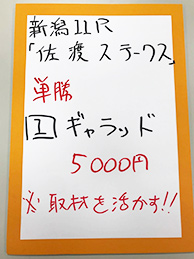 新潟11R
「佐渡ステークス」
単勝
1 ギャラッド
5000円
※取材を活かす!!